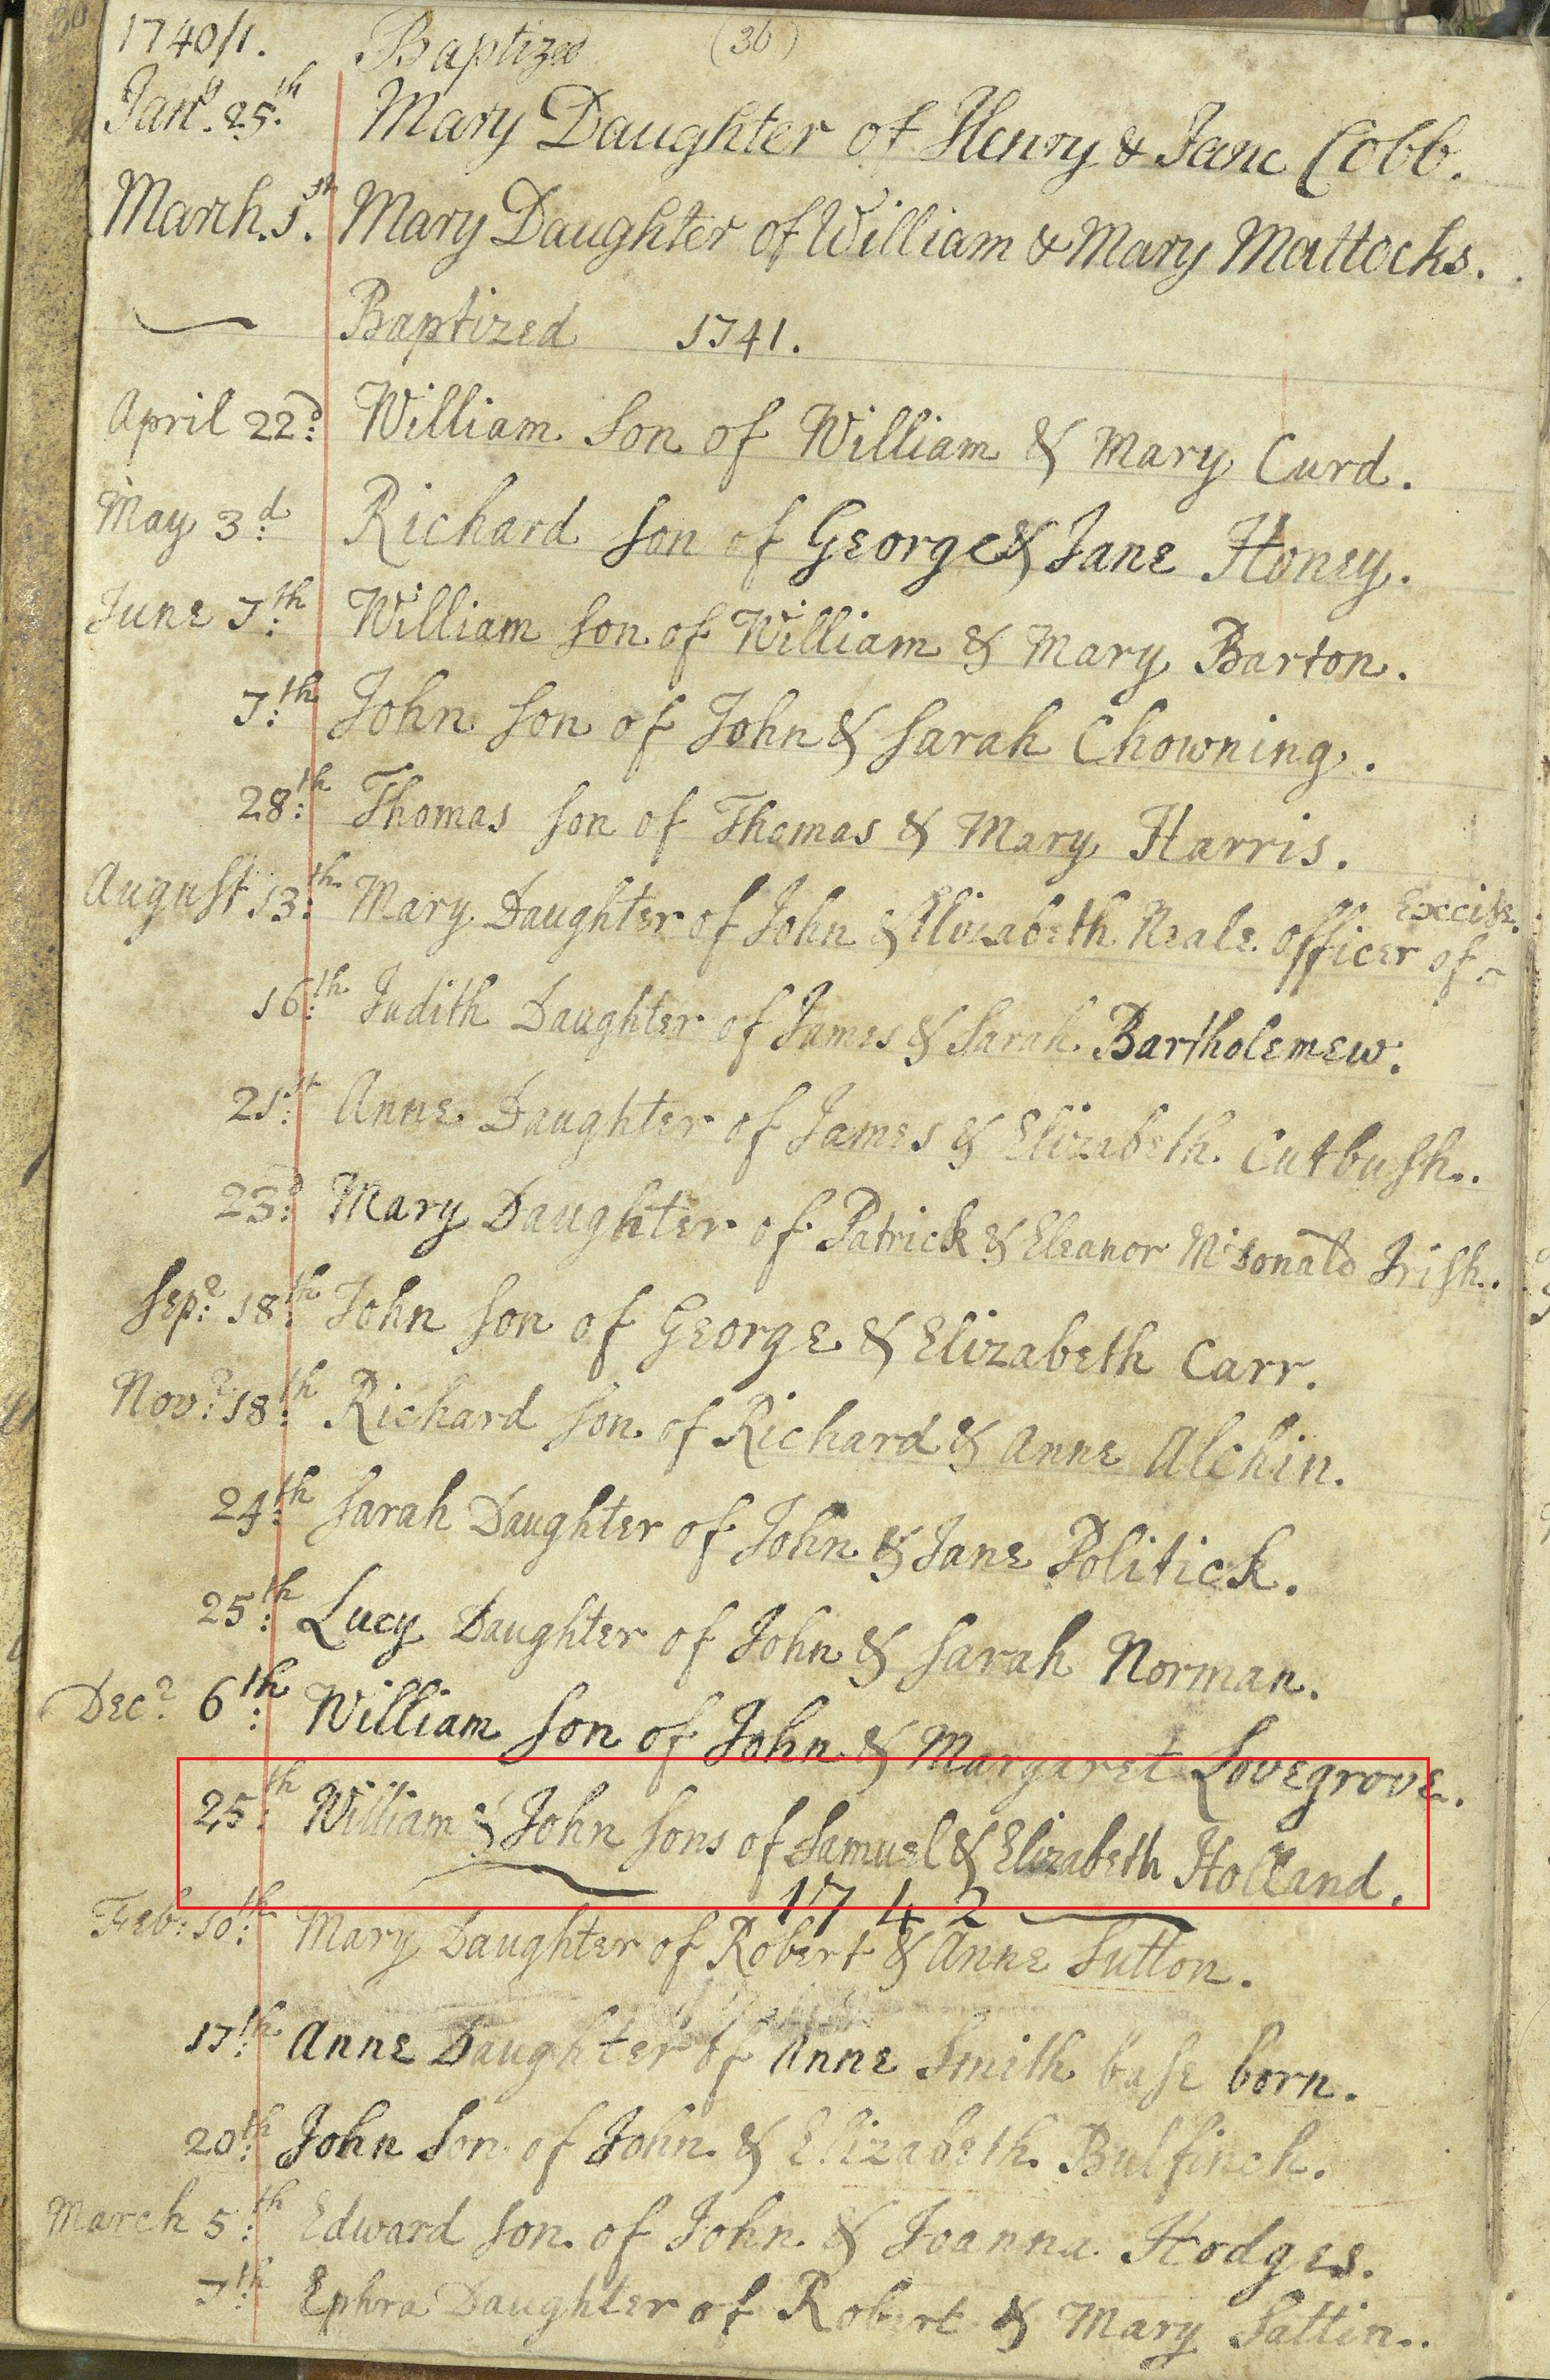 1740/1. Baptized (36)
Janry. 25th. Mary Daughter of Henry & Jane Cobb.
March. 1st. Mary Daughter of William & Mary Mattocks.
Baptized 1741.
April 22d: William Son of William & Mary Curd.
May 3d: Richard Son of George & Jane Honey.
June 7th: William Son of William & Mary Barton.
7th: John Son of John & Sarah Chowning.
28th: Thomas Son of Thomas & Mary Harris.
August 13th: Mary Daughter of John & Elizabeth Neale Officer of Excise.
16th: Judith Daughter of James & Sarah Bartholemew.
21st: Anne Daughter of James & Elizabeth Cutbush.
23d: Mary Daughter of Patrick & Eleanor McDonald Irish.
Sepr: 18th: John Son of George & Elizabeth Carr.
Novr: 18th: Richard Son of Richard & Anne Alchin.
24th: Sarah Daughter of John & Jane Politick.
25th: Lucy Daughter of John & Sarah Norman.
Decr: 6th: William Son of John & Margaret Lovegrove.
25th: William & John Sons of Samuel & Elizabeth Holland.
1742
Feb: 10th: Mary Daughter of Robert & Anne Sutton.
17th: Anne Daughter of Anne Smith base born.
20th: John Son of John & Elizabeth Bulfinch.
March 5th: Edward Son of John & Joanna Hodges.
7th: Ephra Daughter of Robert & Mary Sattin.